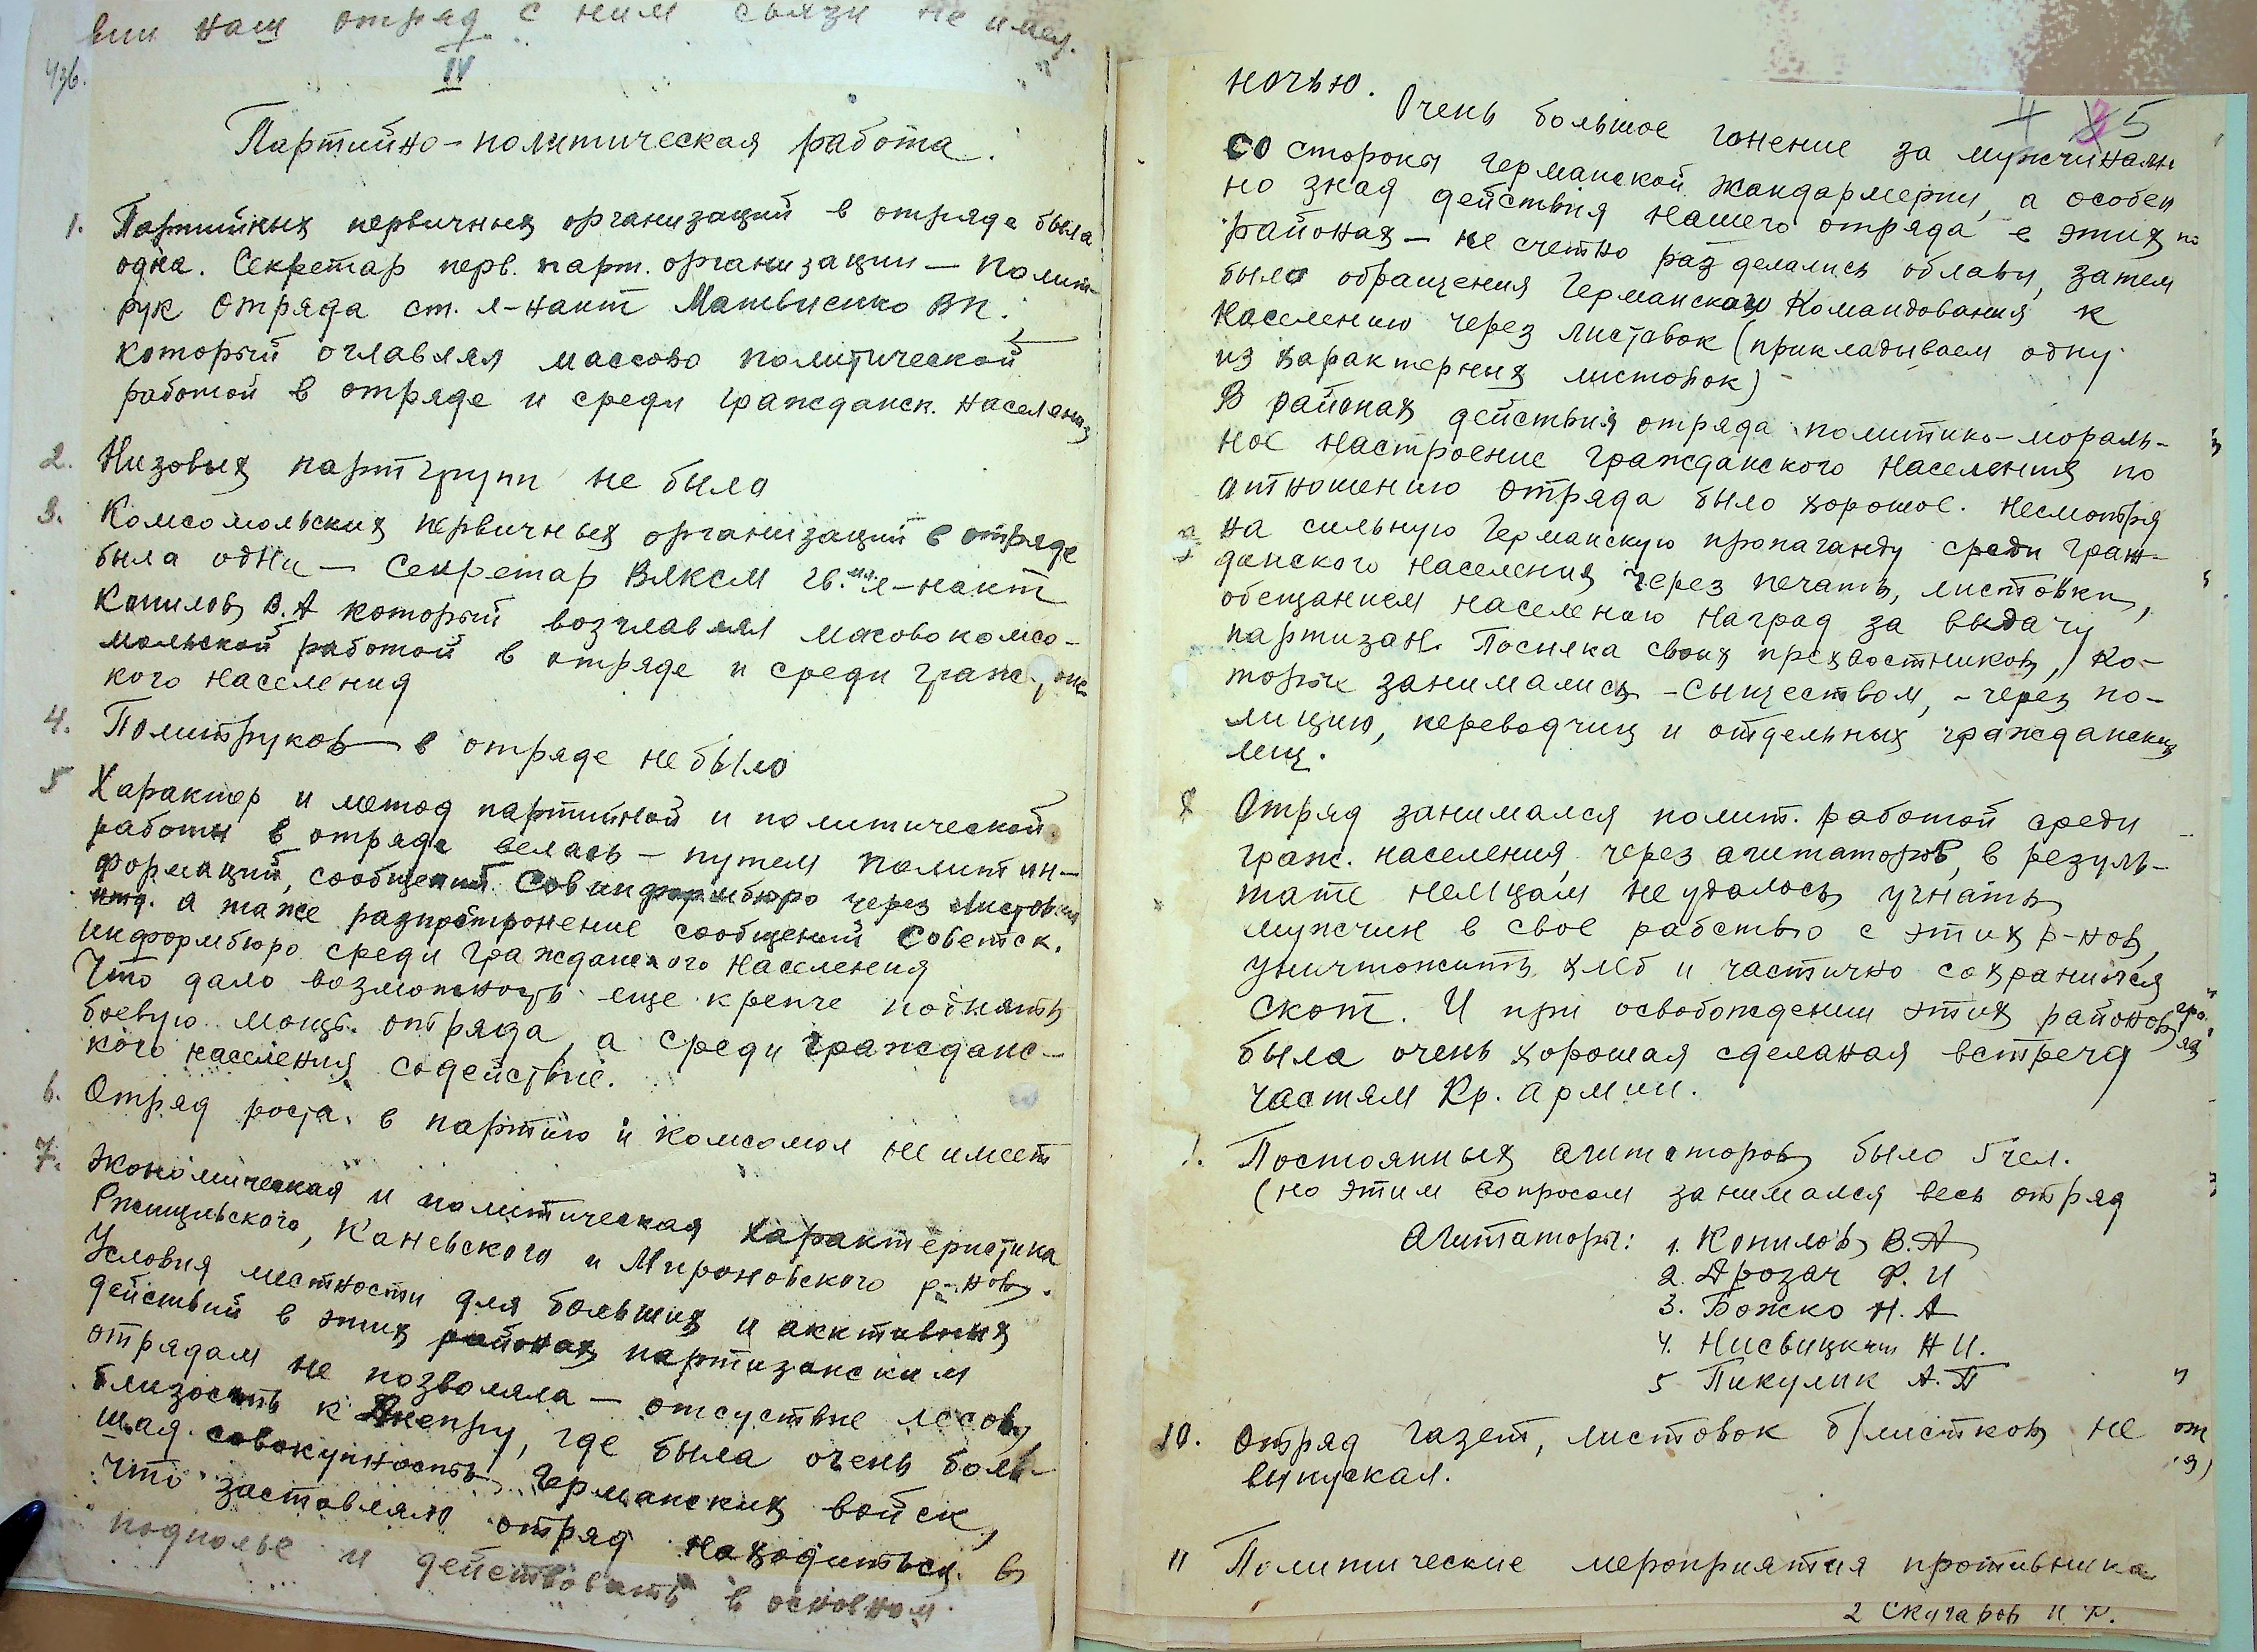 вии наш отряд с ним связи не имел.
IV
Партийно-политическая работа.
1. Партийных первичных организаций в отряде была
одна. Секретар перв. парт. организации — Полит-
рук отряда ст. л-нант Матвиенко ВП.
который оглавлял массово политической
работой в отряде и среди гражданск. населения
2. Низовых партгрупп не было
3. Комсомольских первичных организаций в отряде
была одна — Секретар ВЛКСМ гв. мл. л-нант
Копилов В.А который возглавлял масовокомсо-
мольской работой в отряде и среди гражданс
кого населения
4. Политруков — в отряде не было
5 Характер и метод партийной и политической
работы в отряде велась — путем полит ин-
формаций, сообщений Совинформбюро через листовки
итд. а также разпростронение сообщений Советск.
информбюро среди гражданского населения
Что дало возможность еще крепче поднять
боевую мощь отряда, а среди гражданс-
кого населения содействие.
6. Отряд роста в партию и комсомол не имеет
7. Экономическая и политическая характеристика
Ржищевского, Каневского и Мироновского р-нов.
Условия местности для больших и акктивных
действий в этих районах партизанским
отрядам не позволяла — отсуствие лесов,
близость к Днепру, где была очень боль-
шая совокупность Германских войск,
что заставляло отряд находиться в
подполье и действовать в основном
ночью.
4 5
Очень большое гонение за мужчинами
со стороны германской жандармерии, а особен
но зная действия нашего отряда в этих
районах — не счетно раз делались облавы, затем
было обращения Германского Командования к
населению через листовок (прикладываем одну
из характерных листовок)
В районах действия отряда политико-мораль-
ное настроение гражданского населения по
отношению отряда было хорошое. Несмотря
на сильную Германскую пропаганду среди граж-
данского населения через печать, листовки,
обещанием населеною наград за выдачу
партизан. Посилка своих прехвостников, ко-
торые занимались — сыществом, — через по-
лицию, переводчиц и отдельных гражданских
лиц.
8 Отряд занимался полит. работой среди
граж. населения, через агитаторов, в резуль-
тате немцам не удалось угнать
мужчин в свое рабство с этих р-нов,
уничтожить хлеб и частично сохранился
скот. И при освобождении этих районов
была очень хорошая сделаная встреча
частям Кр. армии.
9. Постоянных агитаторов было 5 чел.
(но этим вопросом занимался весь отряд
Агитаторы: 1. Копилов В.А
2. Дрозач Ф. И
3. Божко Н. А
4. Нисвицкий Н И.
5 Пикулик А. П
10. Отряд газет, листовок б/листков не
выпускал.
11 Политические мероприятия противника
2 Скугаров И. Ф.